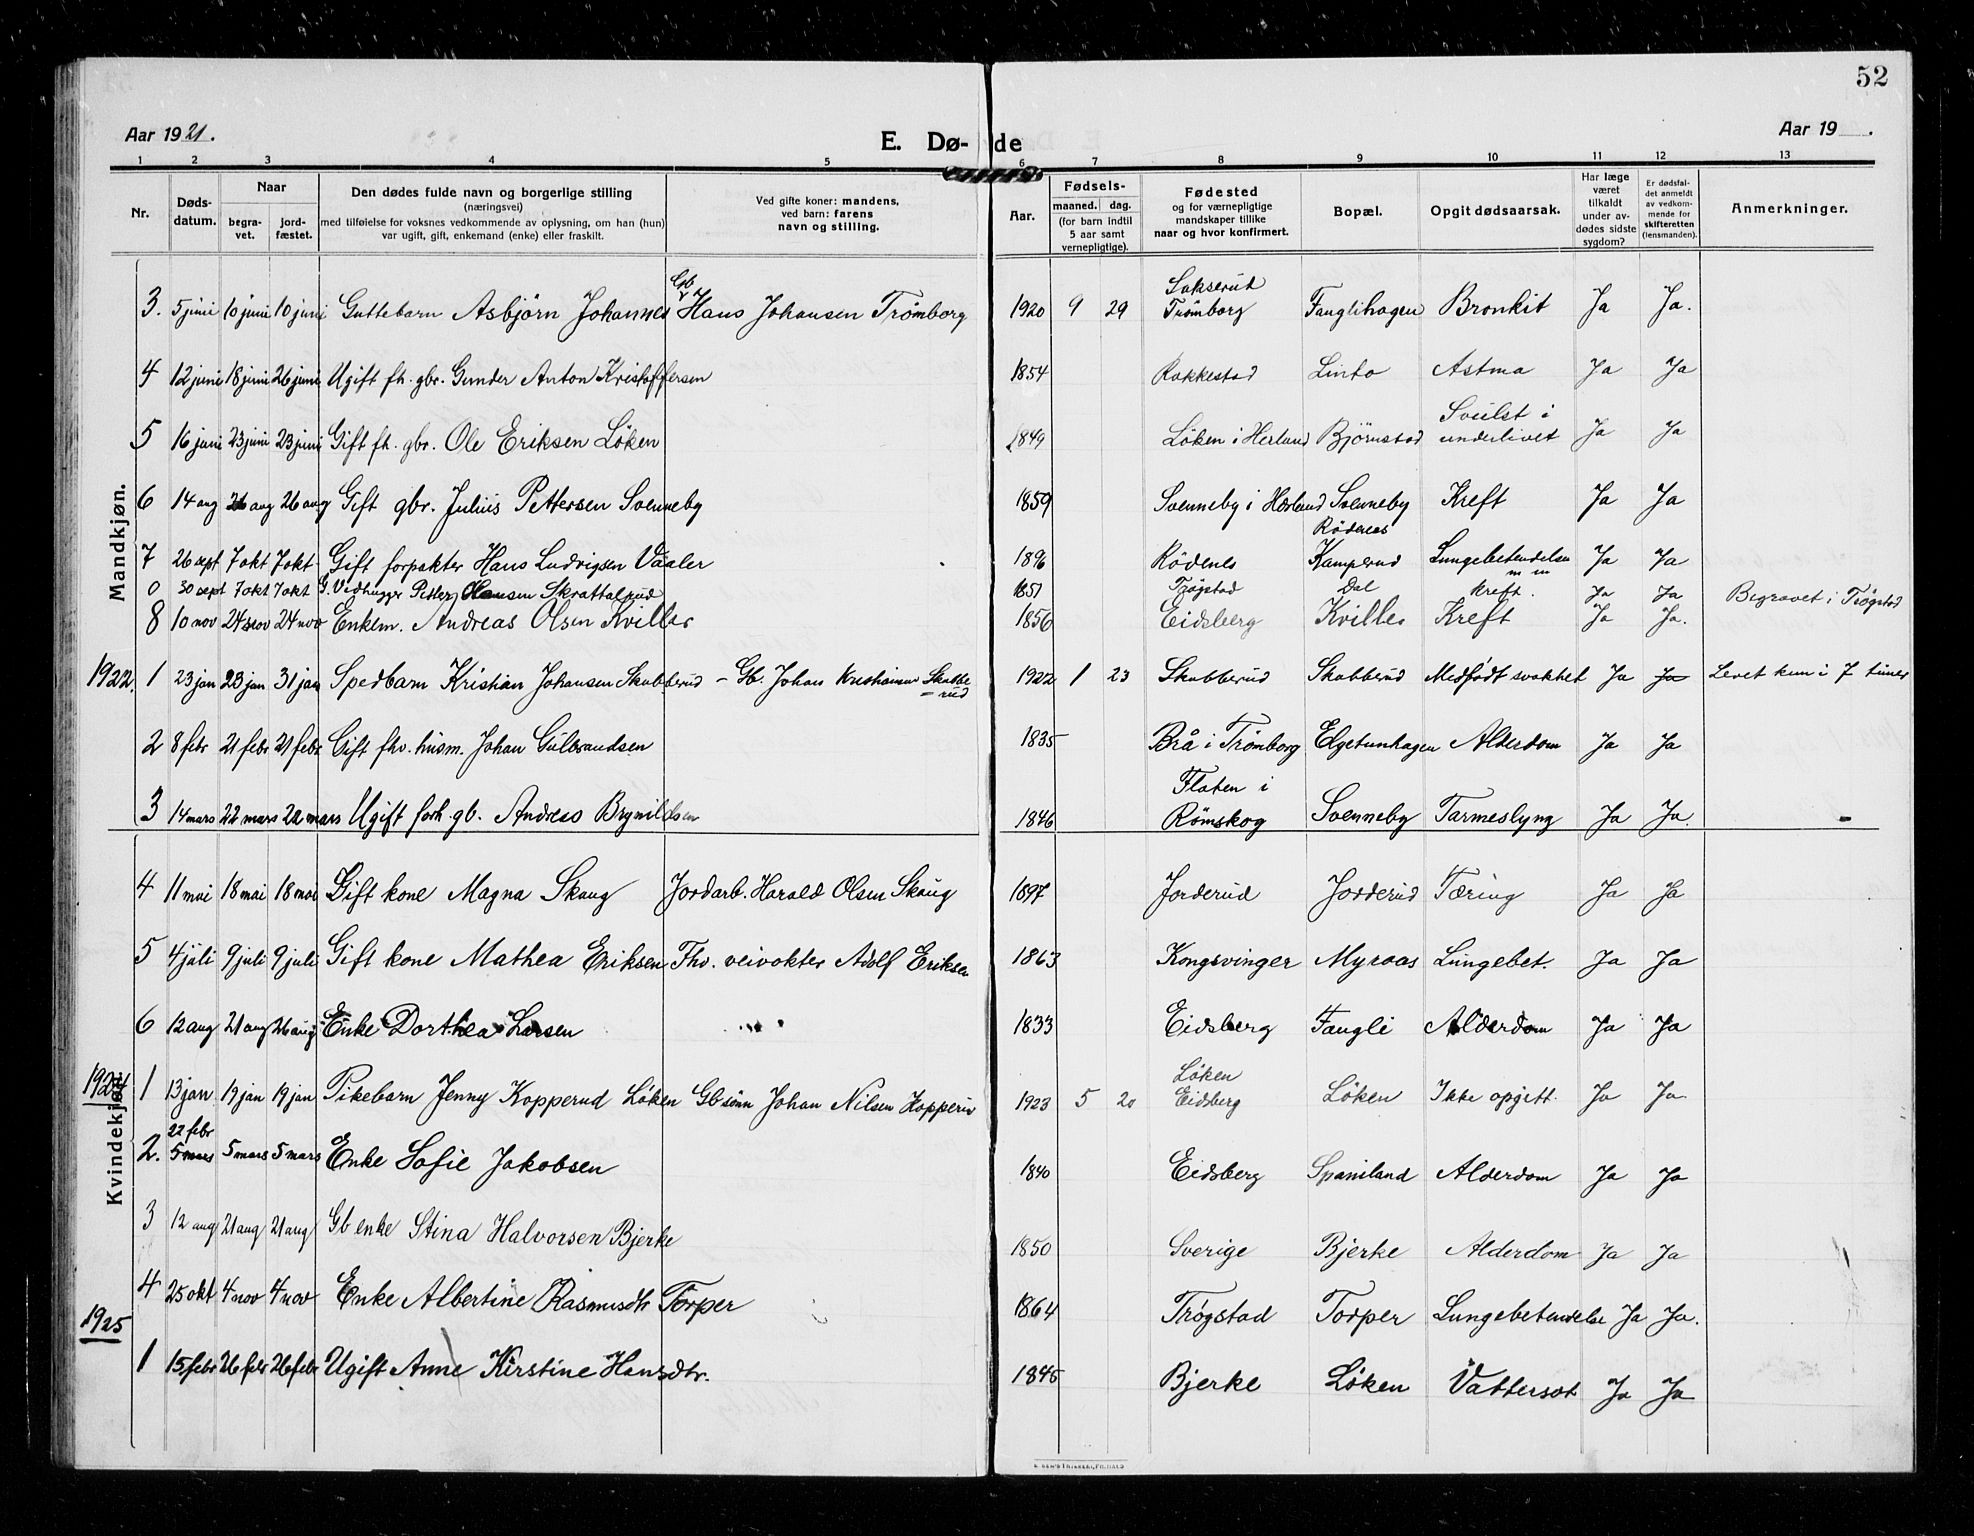 52
Aar 1921. E. Dø- de Aar 19 .
1 2 3 4 5 6 7 8 9 10 11 12 13
Nr. Døds-datum. Naar begra-vet. jord-fæstet. Den dødes fulde navn og borgerlige stilling (næringsvei) med tilføielse for voksnes vedkommende av oplysning, om han (hun) var ugift, gift, enkemand (enke) eller fraskilt. Ved gifte koner: mandens, ved barn: farens navn og stilling. Aar. Fødsels- maaned. dag. (for barn indtil 5 aar samt vernepligtige). Fødested og for værnepligtige mandskaper tillike naar og hvor konfirmert. Bopæl. Opgit dødsaarsak. Har læge været tilkaldt under av-dødes sidste sygdom? Er dødsfal-det anmeldt av vedkom-mende for skifteretten (lensmanden). Anmerkninger.
Mandkjøn.
3. 5 juni 10 juni 10 juni Guttebarn Asbjørn Johannes Gb. Hans Johansen Trömborg 1920 9 29 Sakserud Trömborg Fauglihagen Bronkit Ja Ja.
4 12 juni 18 juni 26 juni Ugift fh. gbr. Gunder Anton Kristoffersen 1854 Rakkestad Linto Astma Ja Ja
5 16 juni 23 juni 23 juni Gift fh. gbr. Ole Eriksen Löken 1849 Löken i Herland Björnstad Svulst i underlivet Ja Ja
6 14 aug 26 aug 26 aug Gift gbr. Julius Pettersen Svenneby 1859 Svenneby i Herland Svenneby Kreft Ja Ja
7 26 sept 7 okt 7 okt Gift forpakter Hans Ludvigsen Vaaler 1896 Rödenes Rödenes Kamperud Lungebetendelse Ja Ja
0 30 sept 7 okt 7 okt G. Vedhugger Petter Hansen Skrattalsrud 1851 Trøgstad Dal kreft. Ja Ja Begravet i Trøgstad
8 10 nov 24 nov 24 nov Enkem. Andreas Olsen Kviller 1856 Eidsberg Kviller Kreft Ja Ja.
1922. 1 23 jan 23 jan 31 jan Spedbarn Kristian Johansen Skabberud - Gb. Johan Kristiansen Skabbe=rud 1922 1 23 Skabberud Skabberud Medfödt svakhet Ja Ja Levet kun i 7 timer
2 8 febr 21 febr 21 febr Gift fhv. husm. Johan Gulbrandsen 1835 Brå i Trömborg Elgetunhagen Alderdom Ja Ja
3 14 mars 22 mars 22 mars Ugift forh. gb. Andreas Brynildsen 1846 Flaten i Römskog Svenneby Tarmeslyng Ja Ja.
Kvindekjøn.
4 11 mai 18 mai 18 mai Gift kone Magna Skaug Jordarb. Harald Olsen Skaug 1897 Jorderud Jorderud Tæring Ja Ja
5 4 juli 9 juli 9 juli Gift kone Mathea Eriksen Fhv. veivokter Adolf Eriksen 1863 Kongsvinger Myraas Lungebet. Ja Ja
6 12 aug 21 aug 26 aug Enke Dorthea Larsen 1833 Eidsberg Faugli Alderdom Ja Ja
1924 1 13 jan 19 jan 19 jan Pikebarn Jenny Kopperud Löken Gbsönn Johan Nilsen Kopperu 1923 5 20 Löken Eidsberg Löken Ikke opgitt. Ja Ja
2. 22 febr 5 mars 5 mars 5 mars Enke Sofie Jakobsen 1840 Eidsberg Spaniland Alderdom Ja Ja
3 12 aug 21 aug 21 aug Gb enke Stina Halvorsen Bjerke 1850 Sverige Bjerke Alderdom Ja Ja
4 25 okt 4 nov 4 nov Enke Albertine Rasmusdtr Torper 1864 Trøgstad Torper Lungebetendelse Ja Ja.
1925 1 15 febr 26 febr 26 febr Ugift Anne Kirstine Hansdtr. 1845 Bjerke Löken Vattersot Ja Ja